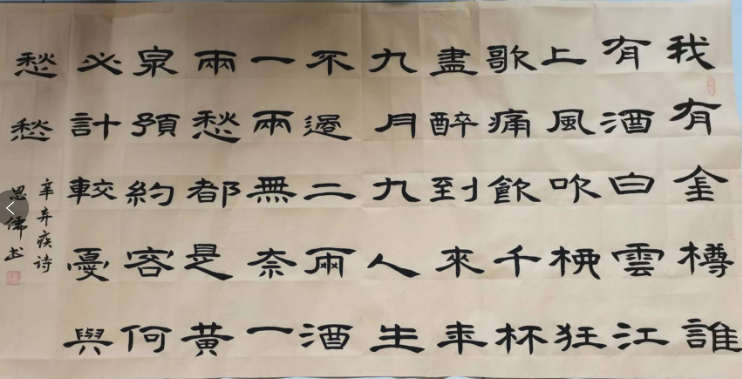 我有金樽誰
有酒白雲江
上風吹狂
歌痛飲千杯
盡醉到來年
九月九人生
不過二兩酒
一兩無奈一
兩愁都是黃
泉預約容何
必計較憂與
愁愁
辛弃疾诗
思儒书